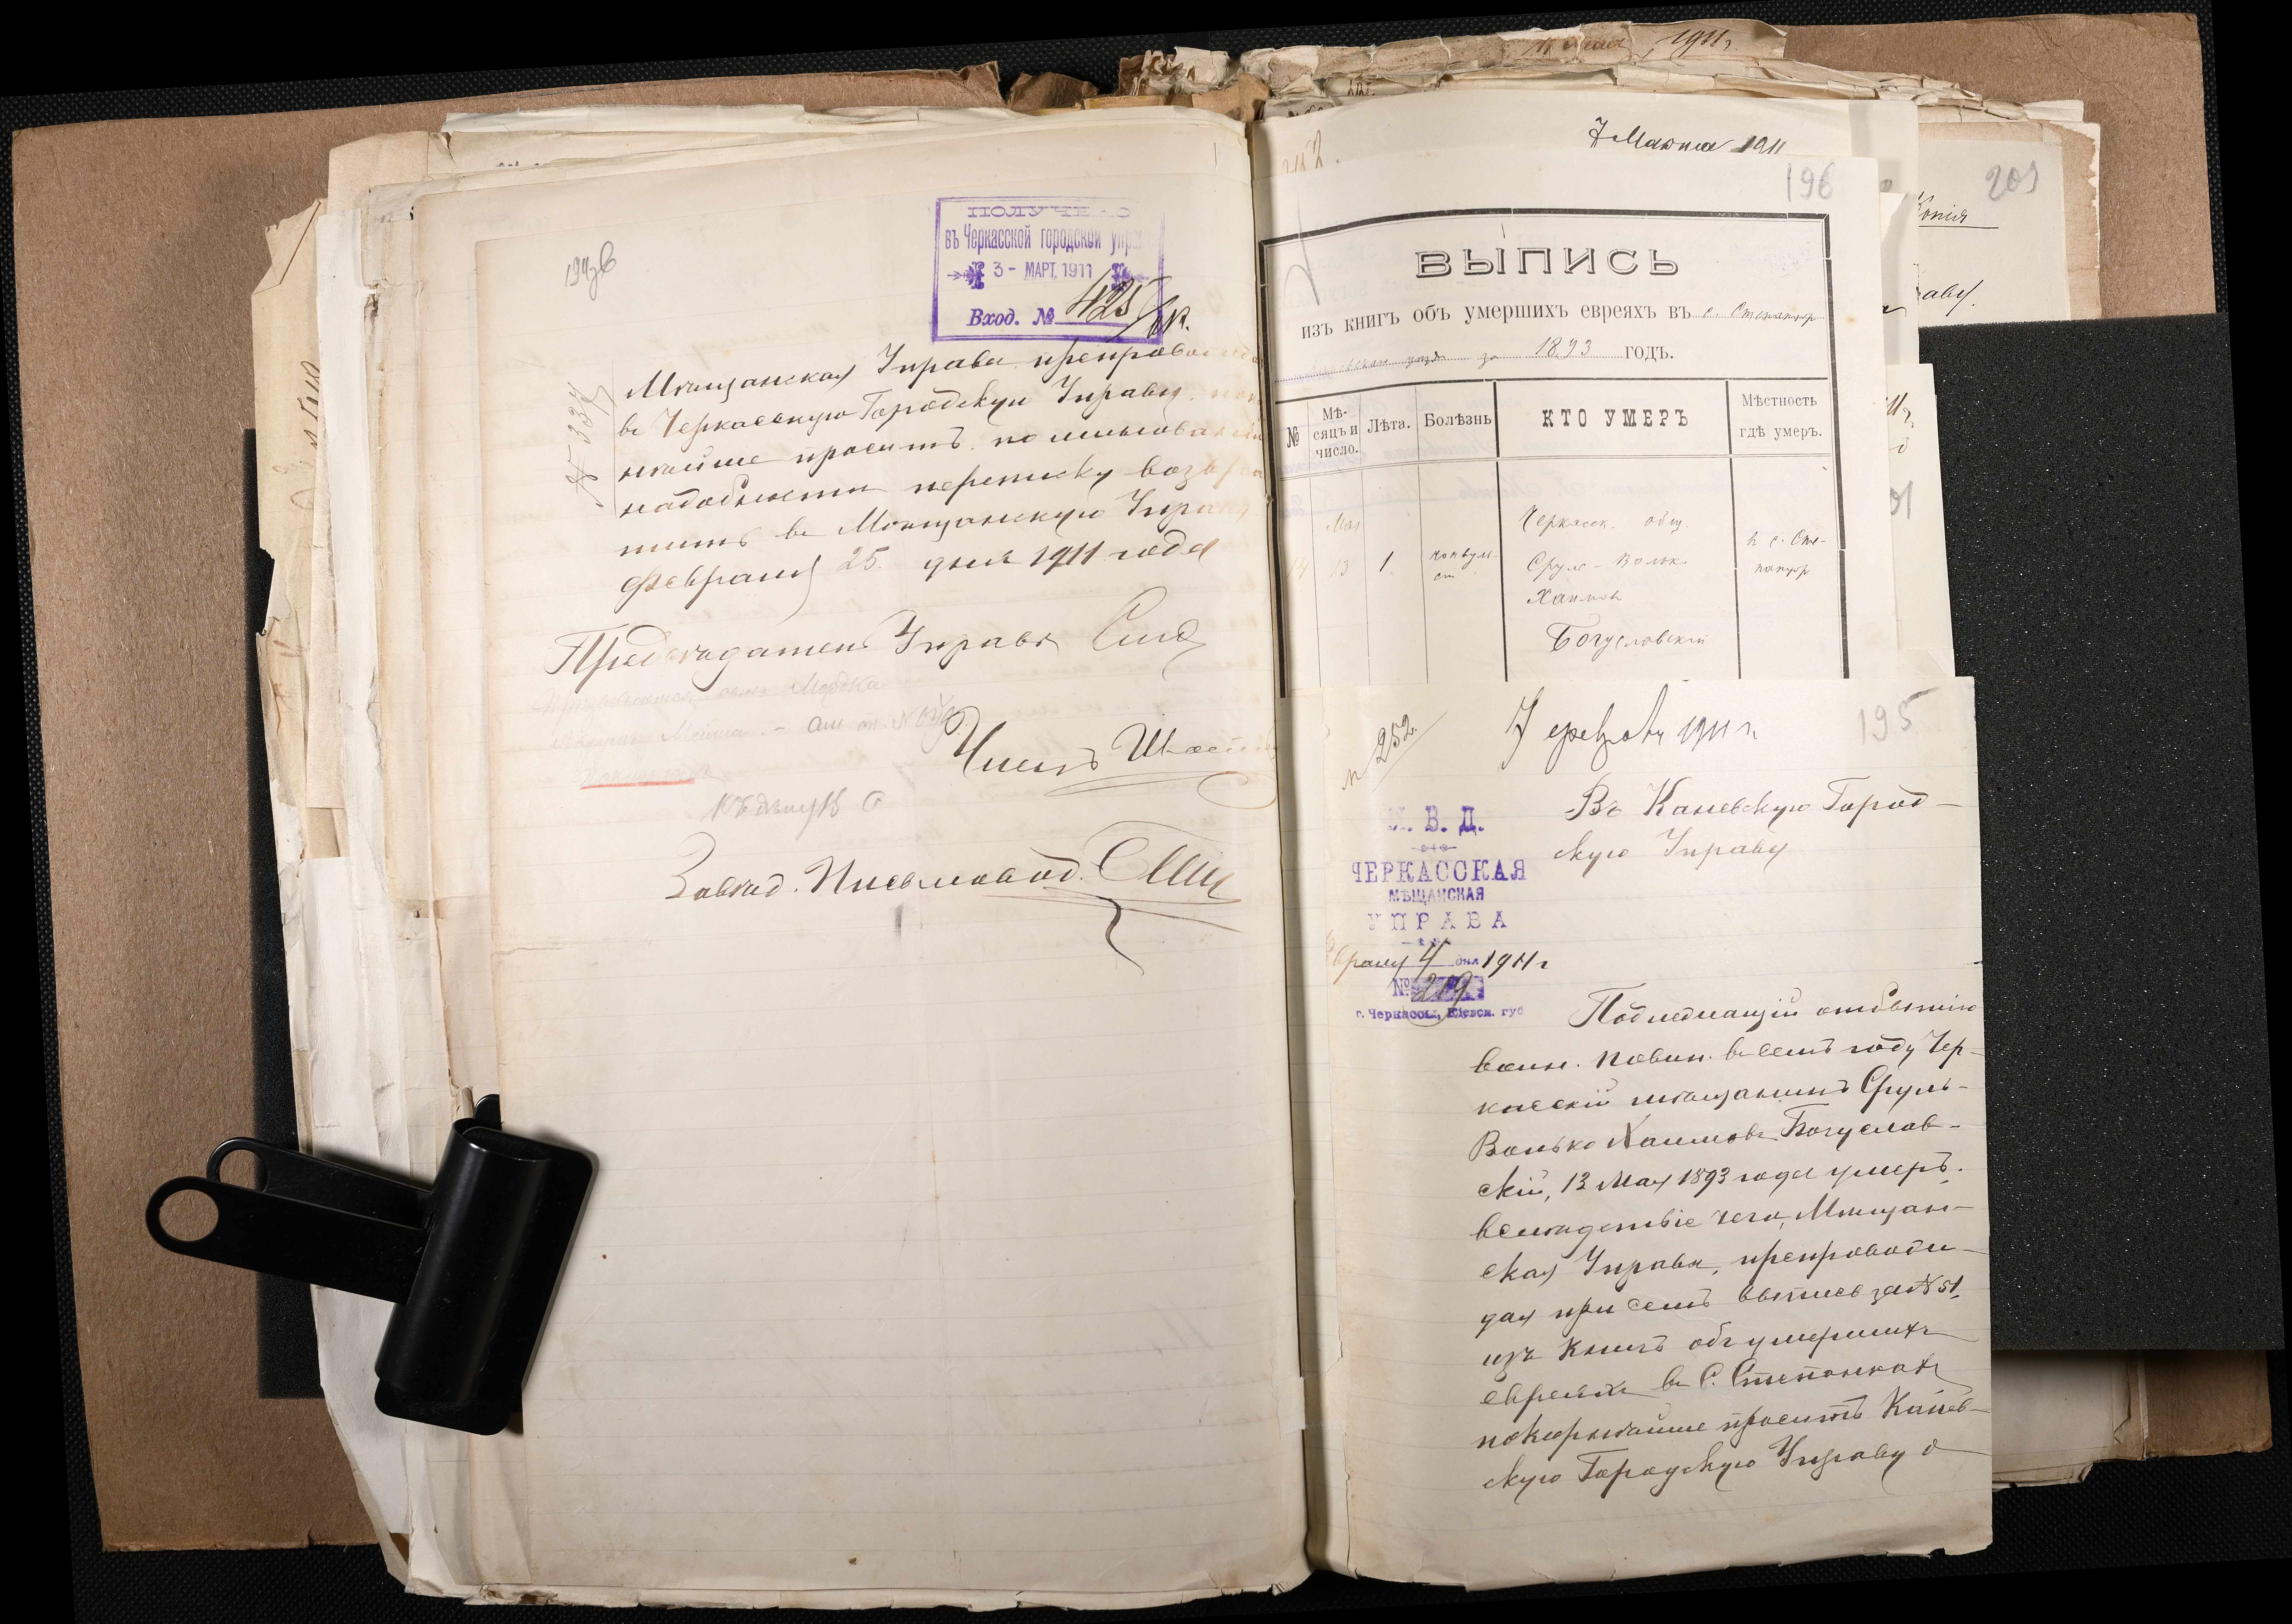 194об
ПОЛУЧЕНО
въ Черкасской городской упра
3 - МАРТ. 1911
Вход. № 425
№ 334
Мѣщанская Управа препровождая
въ Черкасскую Городскую Управу
нѣйше проситъ по миновании
надобности переписку возвра
тить въ Мѣщанскую Управу
Февраля 25 дня 1911 года
Предсѣдатель Управы
Членъ
Завѣд. Письмовод.
11 Мая 1911 г.
7 Марта 1911
196
201
Копія
ВЫПИСЬ
изъ книгъ объ умершихъ евреяхъ въ с. Степанцах
уѣзда за 1893 годъ.
№
Мѣ-
сяцъ и
число.
Лѣта.
Болѣзнь
КТО УМЕРЪ
Мѣстность
гдѣ умеръ.
Мая
13
1
конвульс
Черкасск. общ.
Сруль-Волько
Хаимов
Богуславскій
в с. Сте-
панцах
№ 252.
7 февраля 1911 г.
195
Въ Каневскую Город-
скую Управу
М. В. Д.
ЧЕРКАССКАЯ
МѢЩАНСКАЯ
УПРАВА
Февраля 4 дня 1911 г
№ 219
г. Черкассы, Кіевск. губ
Подлежащій отбытію
воин. повин. въ семъ году Чер-
касскій мѣщанинъ Сруль-
Волько Хаимовъ Богуслав-
скій, 13 Мая 1893 года умеръ,
вслѣдствіе чего, Мѣщан-
ская Управа, препровож-
дая при семъ выпись за № 51,
изъ книгъ объ умершихъ
евреяхъ въ С. Степанцахъ
покорнѣйше проситъ Канев-
скую Городскую Управу о